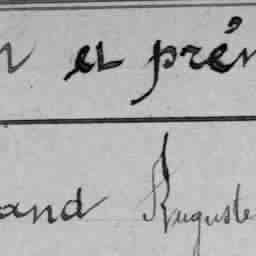 n et prén
and Auguste